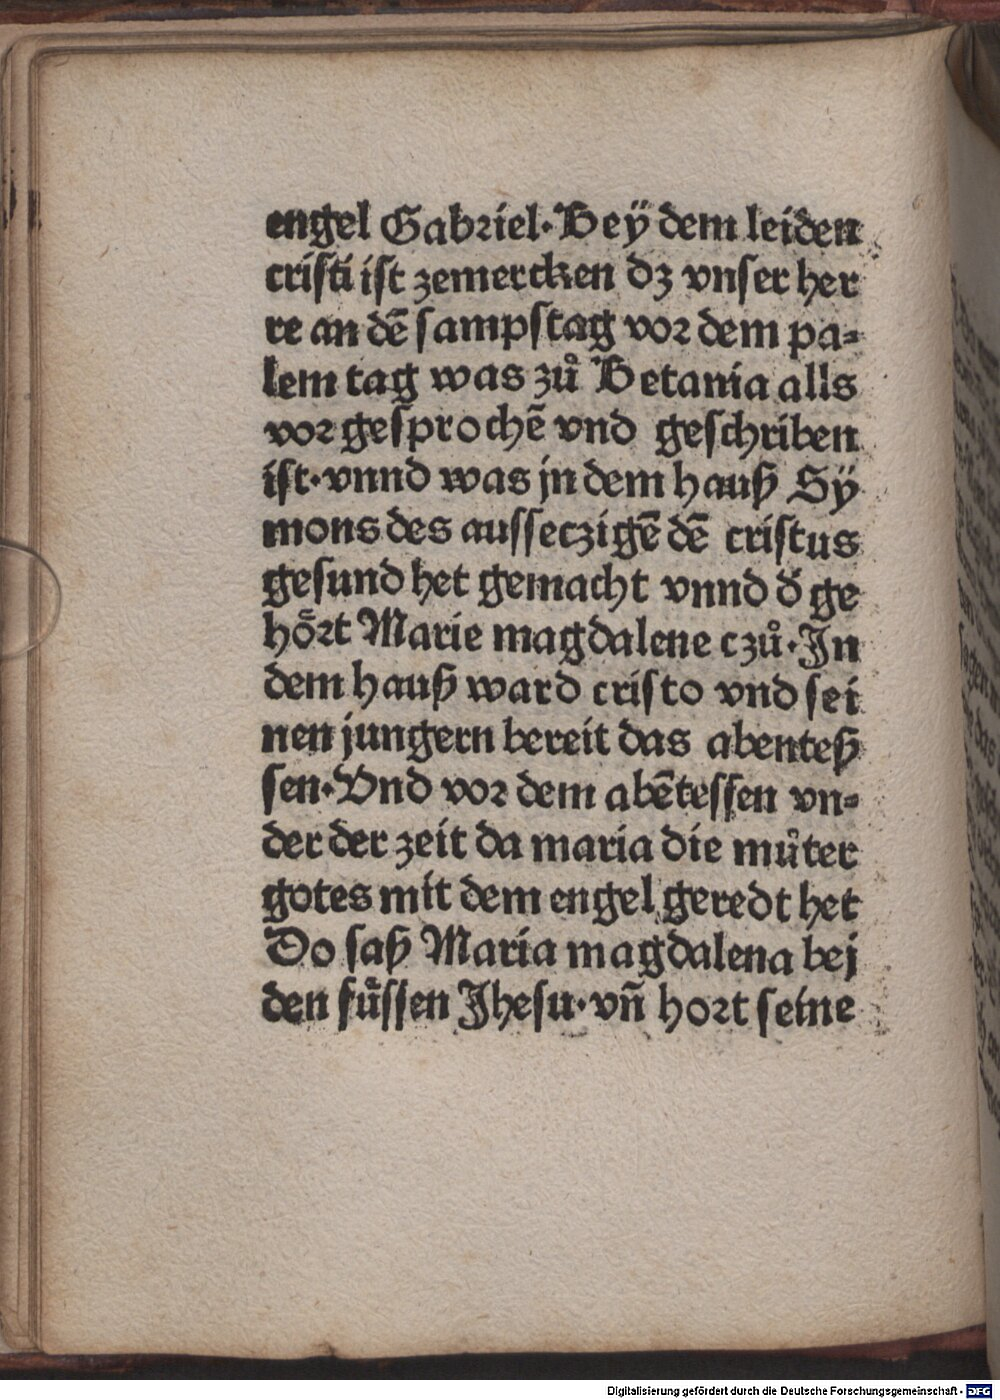 engel Gabriel·Beÿ dem leiden
cristi ist zemercken dz vnser her
re an dẽ sampstag vor dem pa-
lem tag was zů Betania alls
vor gesprochẽ vnd geschriben
ist·vnnd was jn dem hauß Sÿ
mons des ausseczigẽ dẽ cristus
gesund het gemacht vnnd d̕ ge
hoͤrt Marie magdalene czů·In
dem hauß ward cristo vnd sei
nen jungern bereit das abenteß
sen·Vnd vor dem abẽtessen vn-
der der zeit da maria die můter
gotes mit dem engel geredt het
Do saß Maria magdalena bej
den fuͤssen Jhesu·vñ hort seine
Digitalisierung gefördert durch die Deutsche Forschungsgemeinschaft - DFG